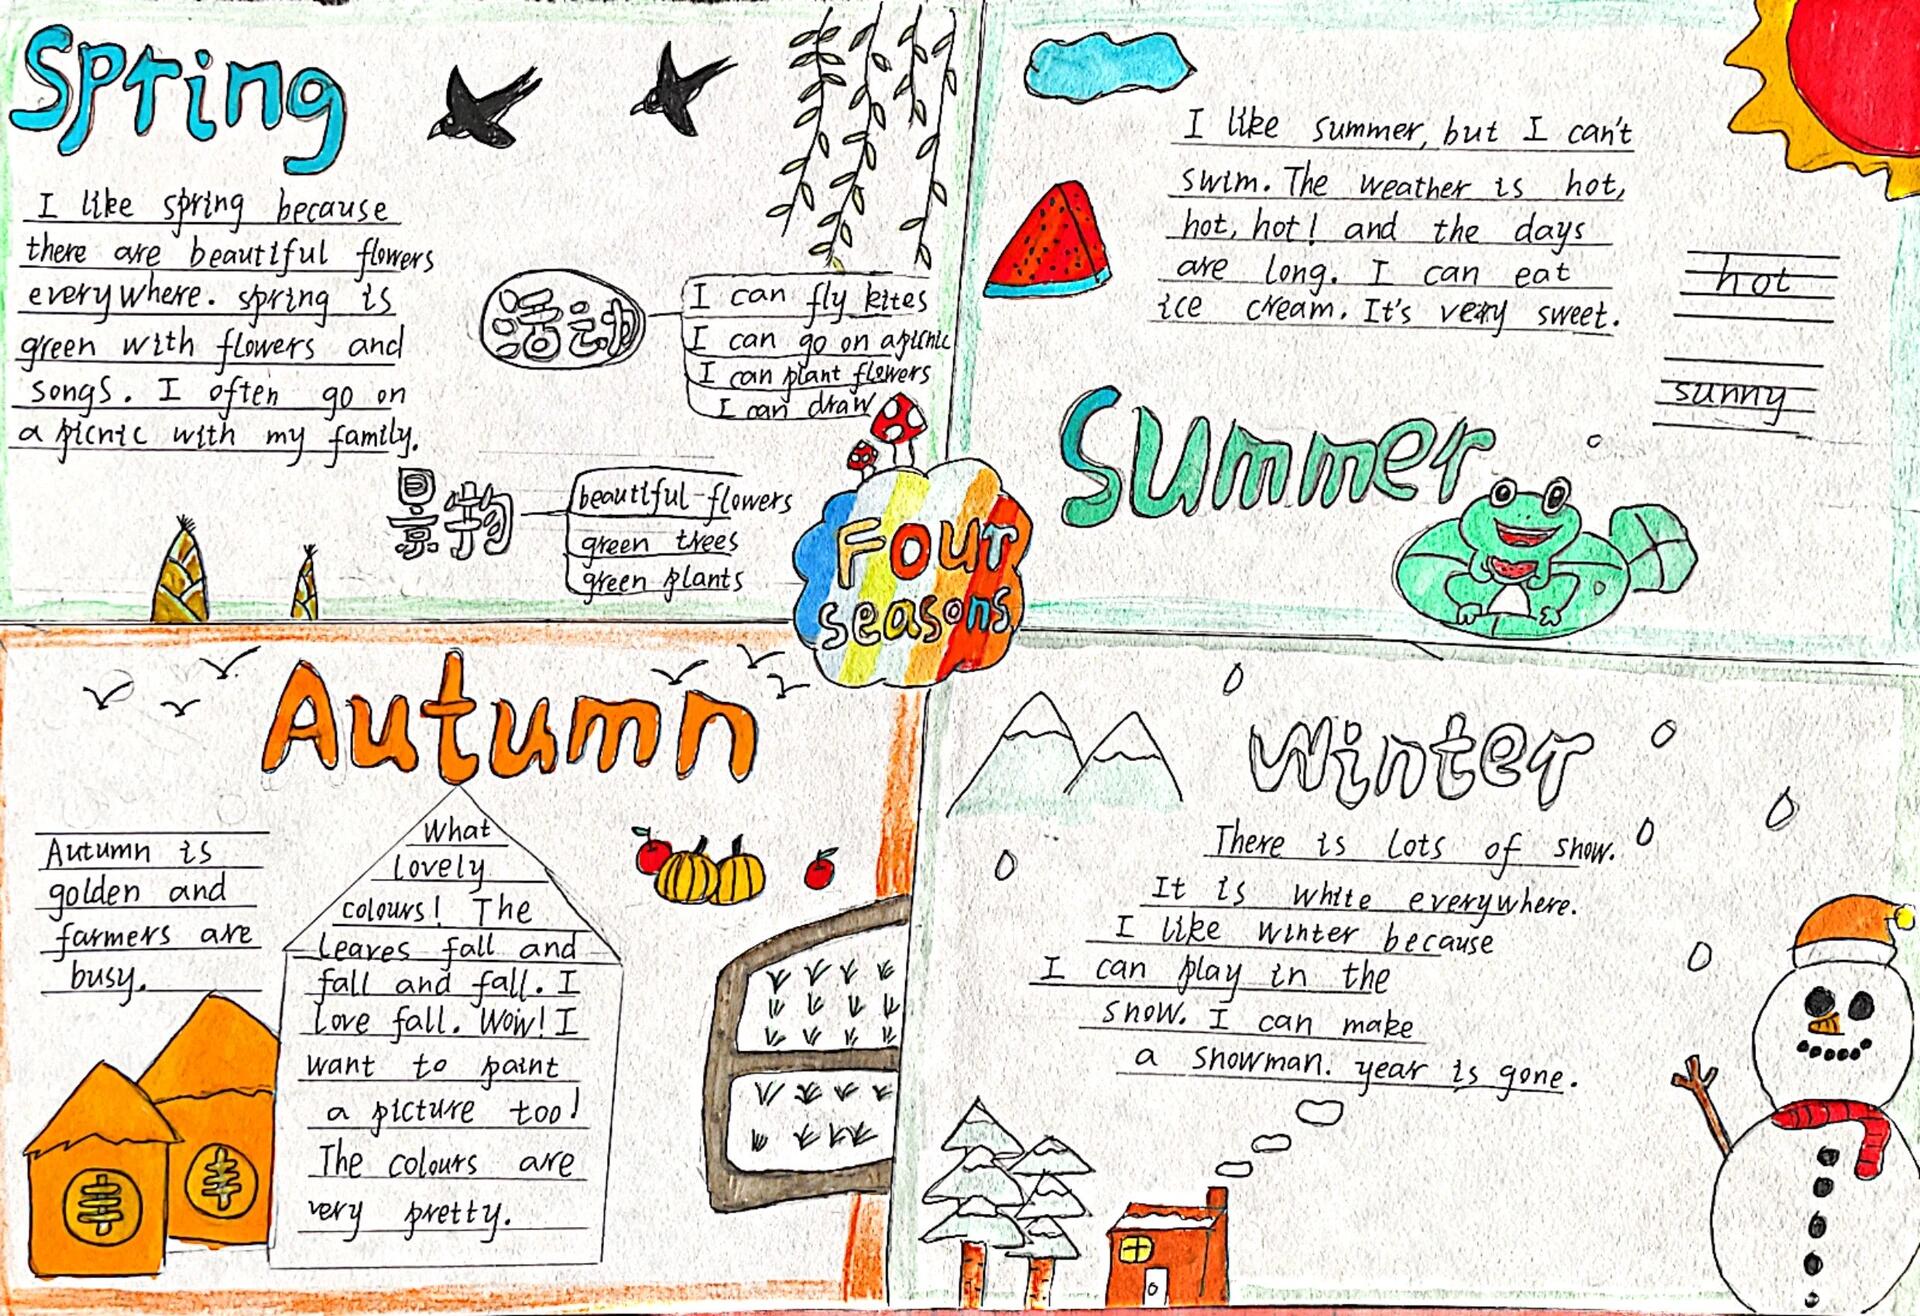 Spring
I like spring because
there are beautiful flowers
everywhere. spring is
green with flowers and
songs. I often go on
a picnic with my family.
活动
I can fly kites
I can go on a picnic
I can plant flowers
I can draw
景物
beautiful flowers
green trees
green plants
Four
seasons
I like summer, but I can't
swim. The weather is hot,
hot, hot! and the days
are long. I can eat
ice cream. It's very sweet.
hot
sunny
Summer
Autumn
Autumn is
golden and
farmers are
busy.
What
lovely
colours! The
leaves fall and
fall and fall. I
love fall. Wow! I
want to paint
a picture too!
The colours are
very pretty.
丰
丰
Winter
There is lots of snow.
It is white everywhere.
I like winter because
I can play in the
snow. I can make
a snowman. year is gone.